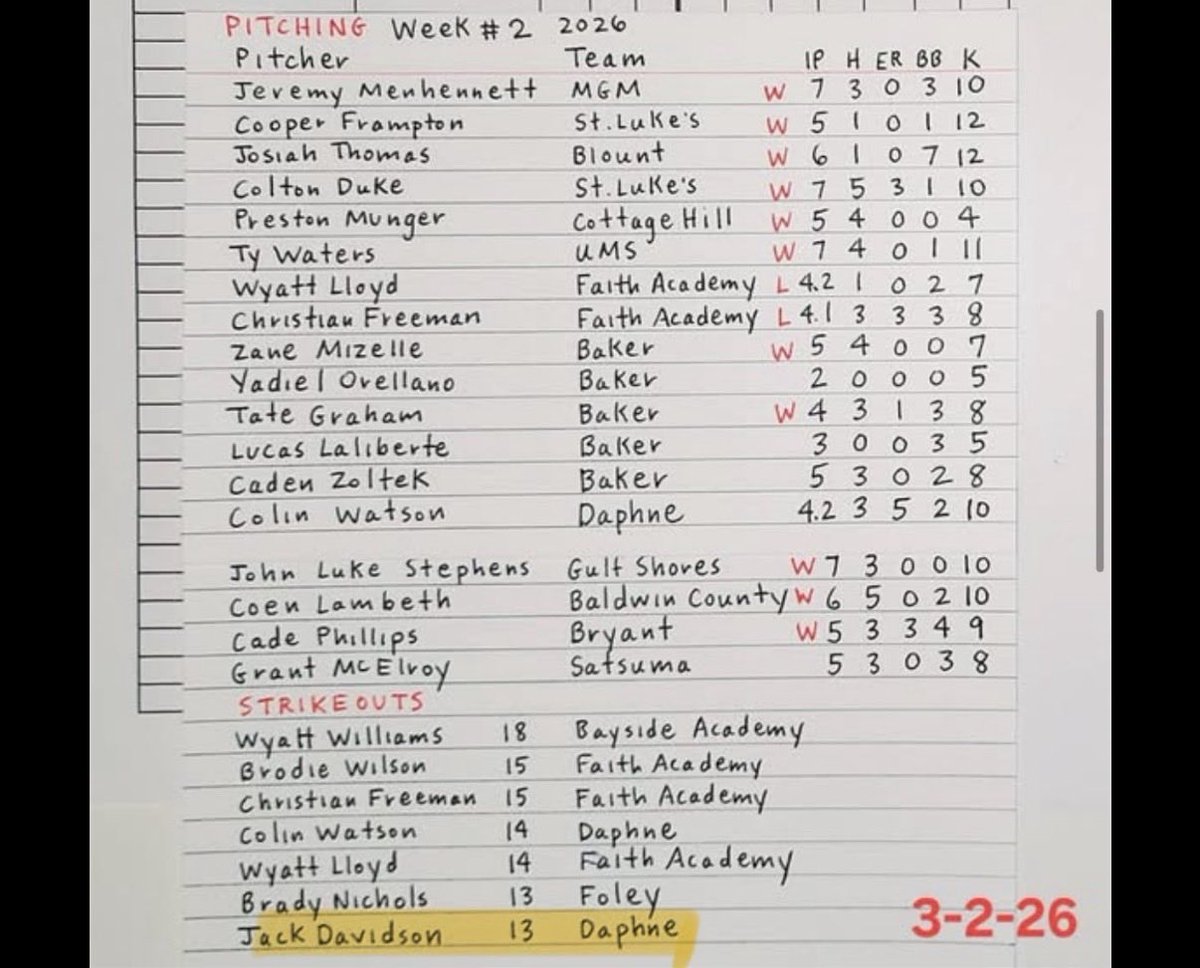 PITCHING Week #2 2026
Pitcher Team IP H ER BB K
Jeremy Menhennett MGM W 7 3 0 3 10
Cooper Frampton St.Luke's W 5 1 0 1 12
Josiah Thomas Blount W 6 1 0 7 12
Colton Duke St.Luke's W 7 5 3 1 10
Preston Munger Cottage Hill W 5 4 0 0 4
Ty Waters UMS W 7 4 0 1 11
Wyatt Lloyd Faith Academy L 4.2 1 0 2 7
Christian Freeman Faith Academy L 4.1 3 3 3 8
Zane Mizelle Baker W 5 4 0 0 7
Yadiel Orellano Baker 2 0 0 0 5
Tate Graham Baker W 4 3 1 3 8
Lucas Laliberte Baker 3 0 0 3 5
Caden Zoltek Baker 5 3 0 2 8
Colin Watson Daphne 4.2 3 5 2 10
John Luke Stephens Gulf Shores W 7 3 0 0 10
Coen Lambeth Baldwin County W 6 5 0 2 10
Cade Phillips Bryant W 5 3 3 4 9
Grant McElroy Satsuma 5 3 0 3 8
STRIKEOUTS
Wyatt Williams 18 Bayside Academy
Brodie Wilson 15 Faith Academy
Christian Freeman 15 Faith Academy
Colin Watson 14 Daphne
Wyatt Lloyd 14 Faith Academy
Brady Nichols 13 Foley
Jack Davidson 13 Daphne
3-2-26